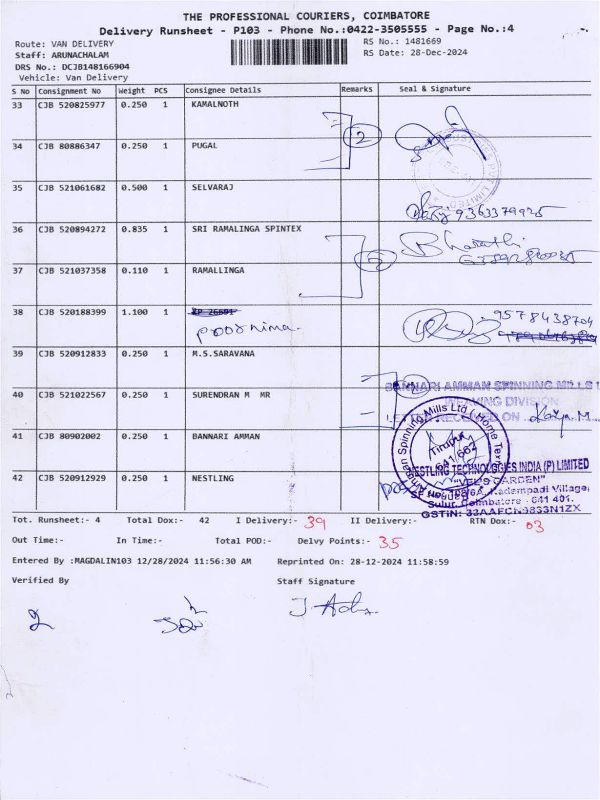 THE PROFESSIONAL COURIERS, COIMBATORE
Delivery Runsheet - P103 - Phone No.:0422-3505555 - Page No.:4
Route: VAN DELIVERY
RS No.: 1481669
Staff: ARUNACHALAM
RS Date: 28-Dec-2024
DRS No.: DCJB148166904
Vehicle: Van Delivery
S No Consignment No Weight PCS Consignee Details Remarks Seal & Signature
33 CJB 520825977 0.250 1 KAMALNOTH
2
34 CJB 80886347 0.250 1 PUGAL
35 CJB 521061682 0.500 1 SELVARAJ
9363379925
36 CJB 520894272 0.835 1 SRI RAMALINGA SPINTEX
Bharathi
37 CJB 521037358 0.110 1 RAMALLINGA
38 CJB 520188399 1.100 1
poornima.
9578438704
39 CJB 520912833 0.250 1 M.S.SARAVANA
40 CJB 521022567 0.250 1 SURENDRAN M MR
BANNARI AMMAN SPINNING MILLS
WEAVING DIVISION
41 CJB 80902002 0.250 1 BANNARI AMMAN
Spinning Mills Ltd
Tirupur
641 662
42 CJB 520912929 0.250 1 NESTLING
NESTLING TECHNOLOGIES INDIA (P) LIMITED
"VELS GARDEN"
Kadempadi Village
Sulur, Coimbatore - 641 401.
Tot. Runsheet:- 4 Total Dox:- 42 I Delivery:- 39 II Delivery:- RTN Dox:- 03
Out Time:- In Time:- Total POD:- Delvy Points:- 35
Entered By :MAGDALIN103 12/28/2024 11:56:30 AM Reprinted On: 28-12-2024 11:58:59
Verified By Staff Signature